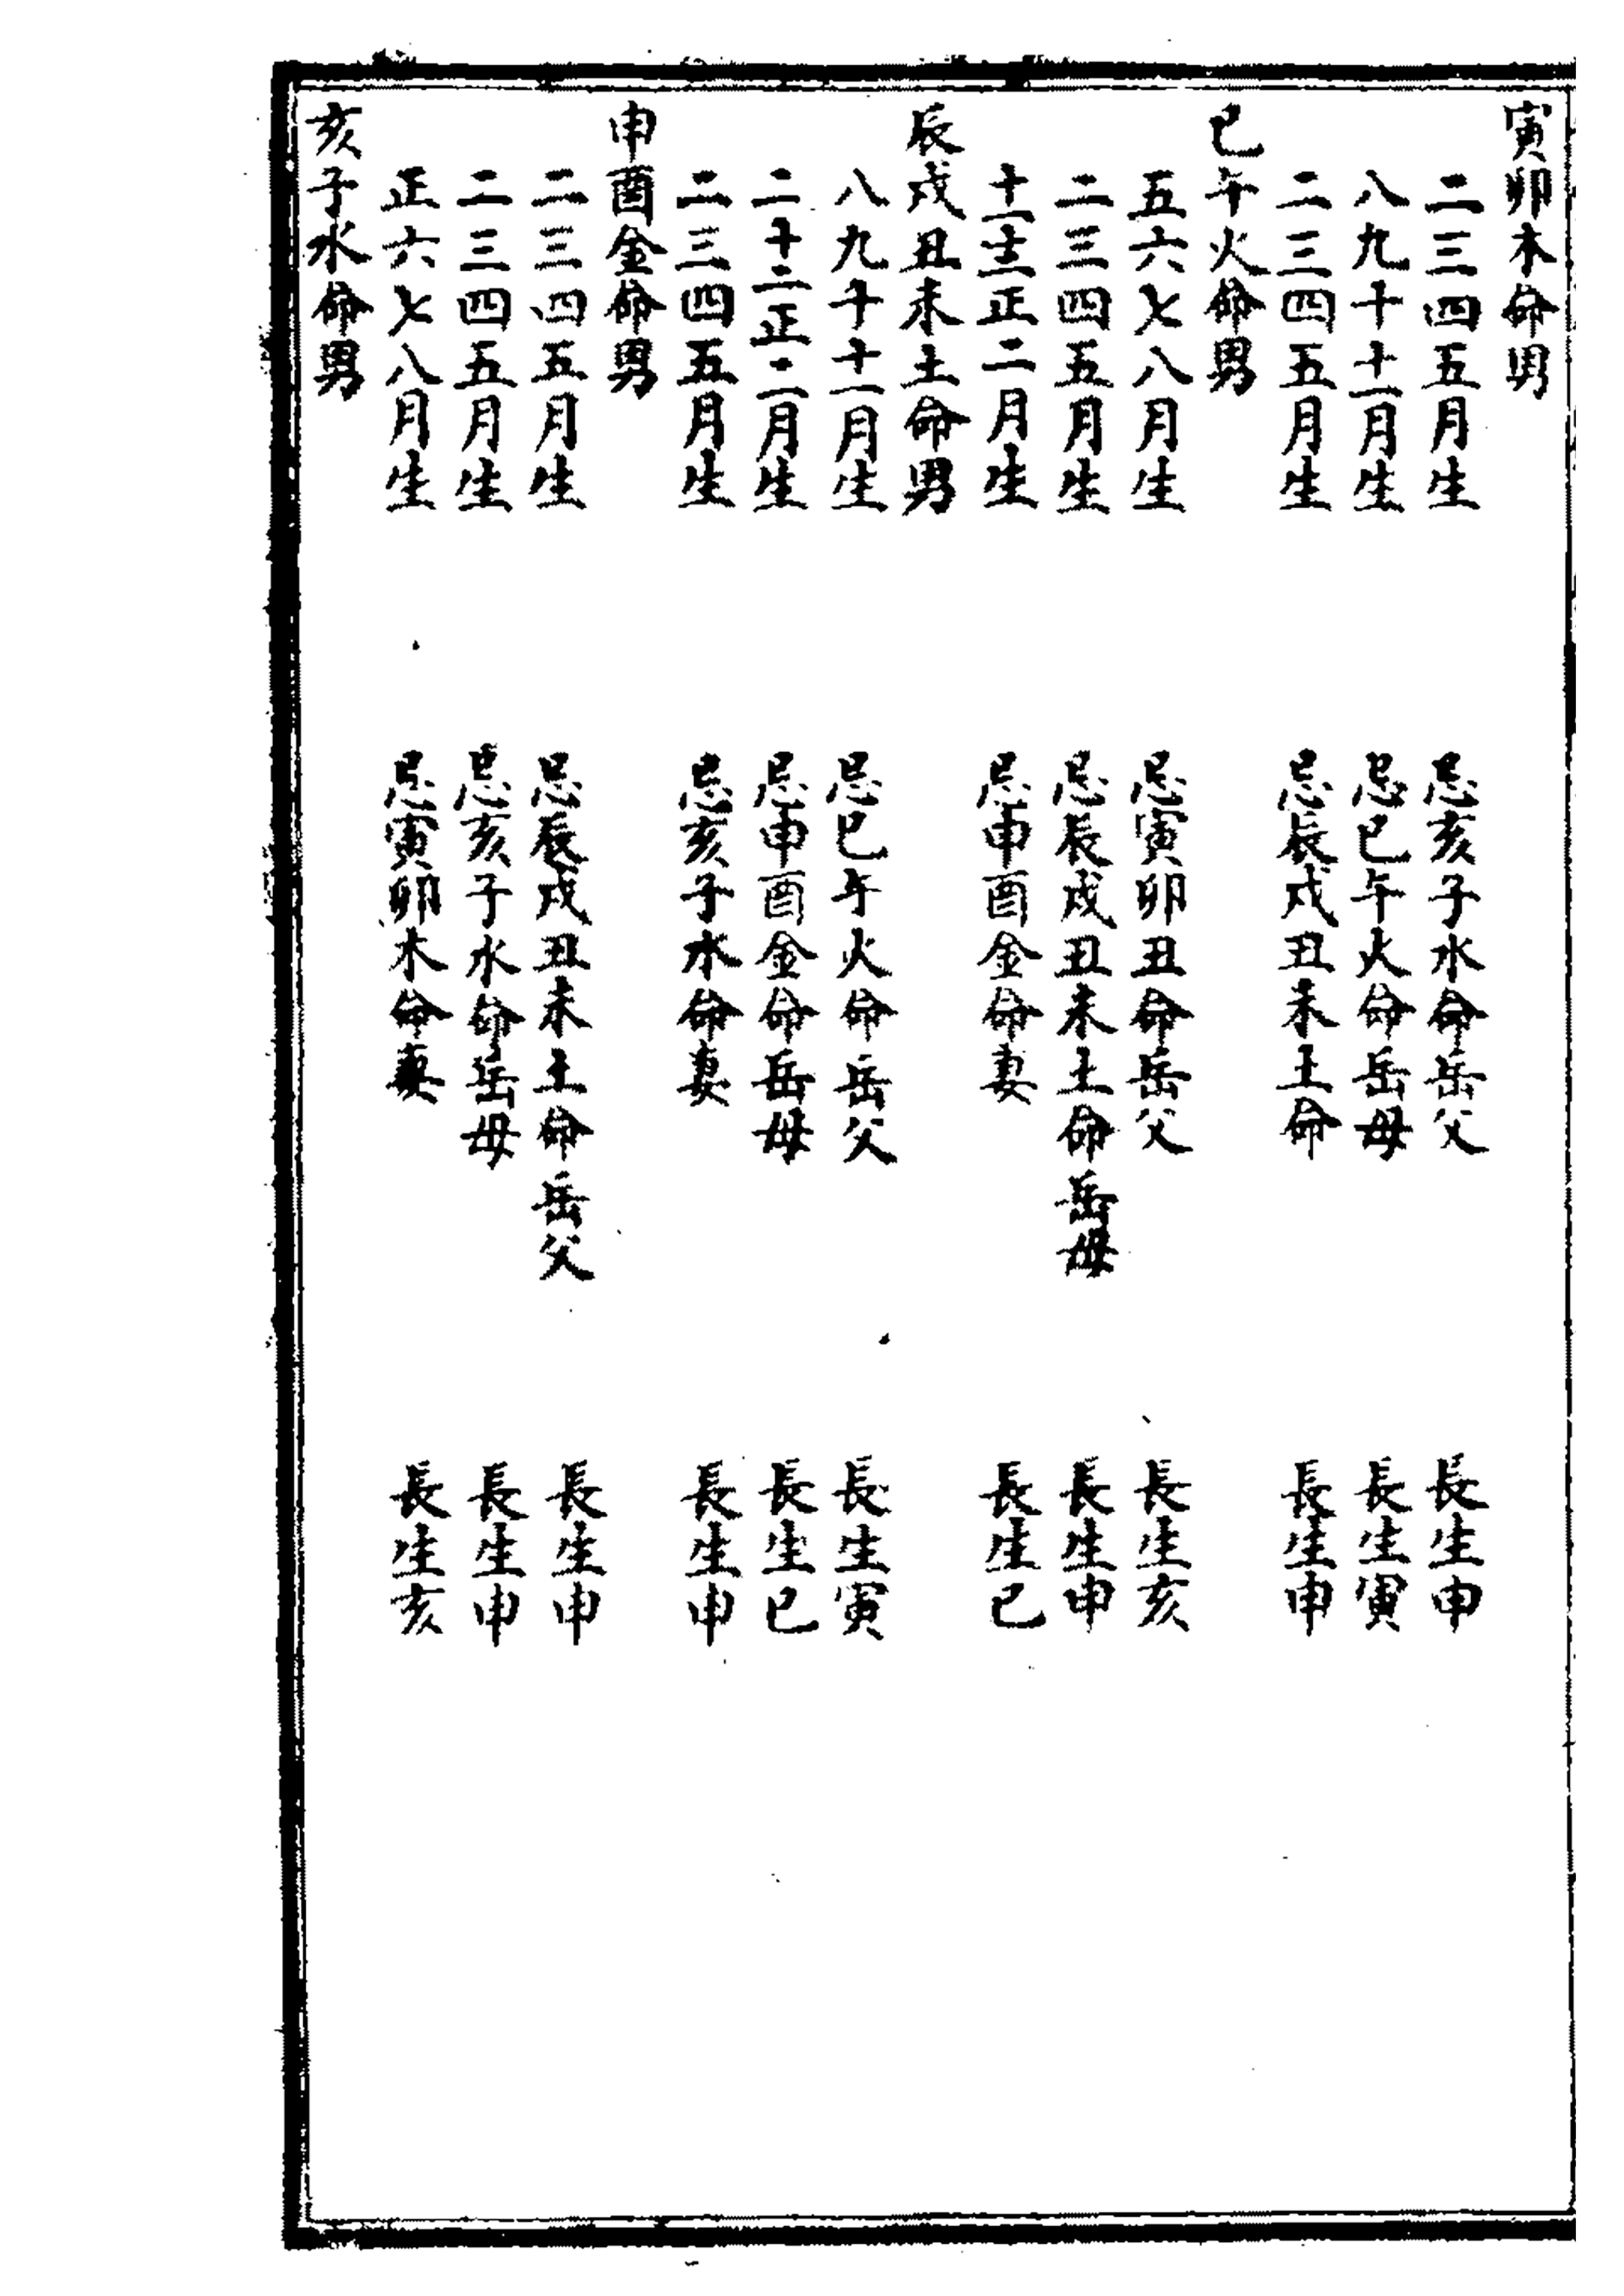 寅卯木命男
二三四五月生 忌亥子水命岳父 長生申
八九十十一月生 忌巳午火命岳母 長生寅
二三四五月生 忌辰戌丑未土命 長生申
巳午火命男
五六七八月生 忌寅卯丑命岳父 長生亥
二三四五月生 忌辰戌丑未土命岳母 長生申
十一十二正二月生 忌申酉金命妻 長生巳
辰戌丑未土命男
八九十十一月生 忌巳午火命岳父 長生寅
二十二正二月生 忌申酉金命岳母 長生巳
二三四五月生 忌亥子水命妻 長生申
申酉金命男
二三四五月生 忌辰戌丑未土命岳父 長生申
二三四五月生 忌亥子水命岳母 長生申
正六七八月生 忌寅卯木命妻 長生亥
亥子水命男